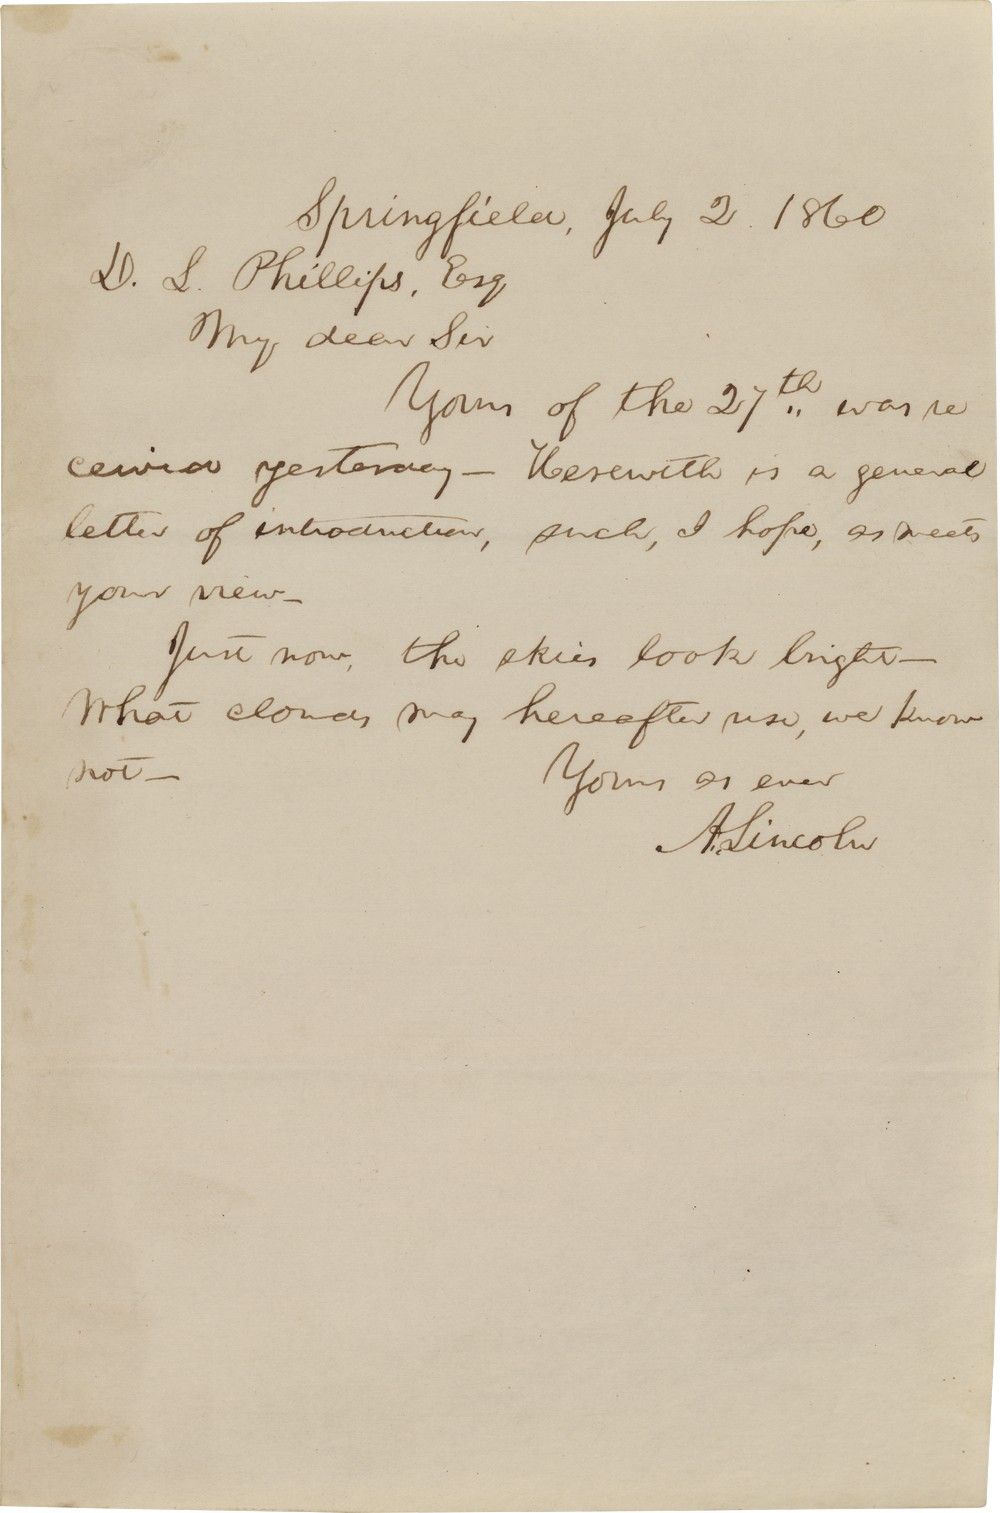 Springfield, July 2. 1860
D. L. Phillips, Esq
My dear Sir
Yours of the 27th was re
ceived yesterday— Herewith is a general
letter of introduction, such, I hope, as meets
your view—
Just now, the skies look bright—
What clouds may hereafter rise, we know
not—
Yours as ever
A. Lincoln